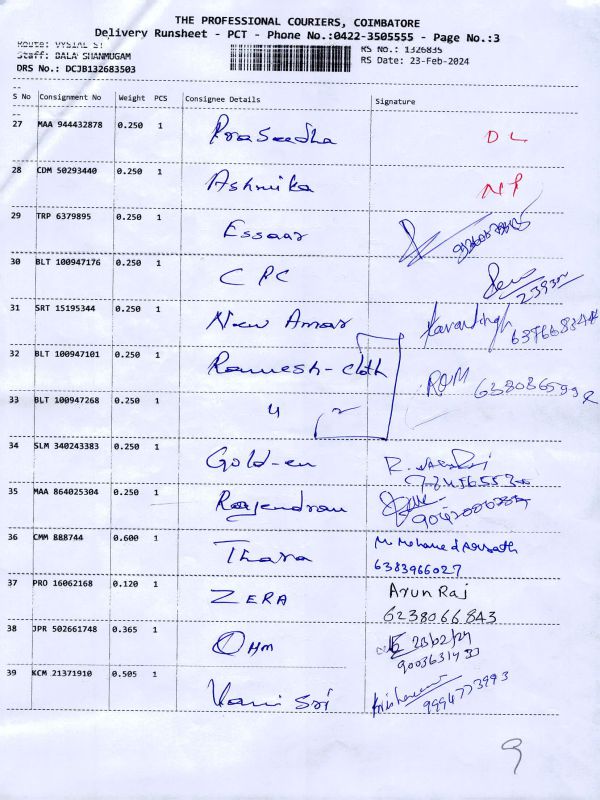 THE PROFESSIONAL COURIERS, COIMBATORE
Delivery Runsheet - PCT - Phone No.:0422-3505555 - Page No.:3
Route: VYSIAL ST
RS No.: 1326835
Staff: BALA SHANMUGAM
RS Date: 23-Feb-2024
DRS No.: DCJB132683503
S No Consignment No Weight PCS Consignee Details Signature
27 MAA 944432878 0.250 1 Praseedha DL
28 CDM 50293440 0.250 1 Ashmika NP
29 TRP 6379895 0.250 1 Essaar
30 BLT 100947176 0.250 1 CPC
31 SRT 15195344 0.250 1 New Amar
32 BLT 100947101 0.250 1 Ramesh-cloth
33 BLT 100947268 0.250 1 4 2
34 SLM 340243383 0.250 1 Gold-en
35 MAA 864025304 0.250 1 Rajendran
36 CMM 888744 0.600 1 Thara
6383966027
37 PRO 16062168 0.120 1 ZERA Arun Raj
6238066843
38 JPR 502661748 0.365 1 OHM 23/02/24
9003631433
39 KCM 21371910 0.505 1 Vani Sri
9994773993
9